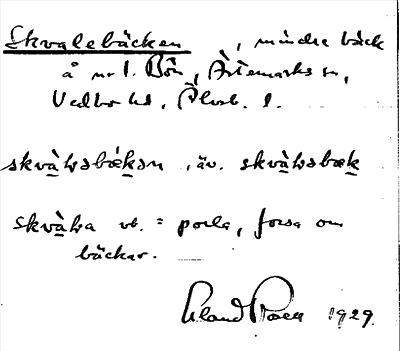 Skvalebäcken, mindre bäck
å nr 1. Bön, Ärtemarks sn,
Vedbo hd, Älvsb. l.
skvàlsbækən, äv. skvàlsbæk
skvàla vb. = porla, forsa om
bäckar.
1929.